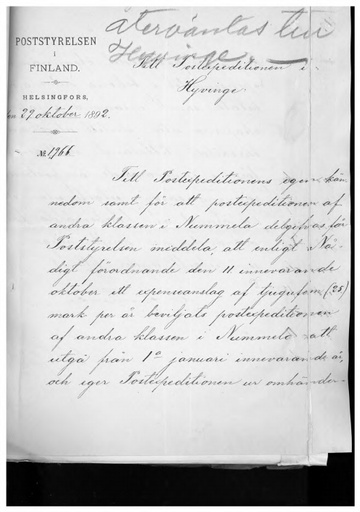 återväntas till
Hyvinge.
POSTSTYRELSEN
I
FINLAND.
HELSINGFORS,
den 29 oktober 1892.
№ 1966.
Till Postexpeditionen i
Hyvinge
Till Postexpeditionens egen kän-
nedom samt för att postexpeditionen af
andra klassen i Nummela delgifvas får
Poststyrelsen meddela, att enligt Nå-
digt förordnande den 11 innevarande
oktober ett expenseanslag af tjugufem (25)
mark per år beviljats postexpeditionen
af andra klassen i Nummela att
utgå från 1a januari innevarande år,
och eger Postexpeditionen ur omhänder-